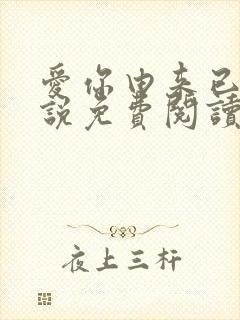 愛你由來已
說免費閱讀
夜上三杆